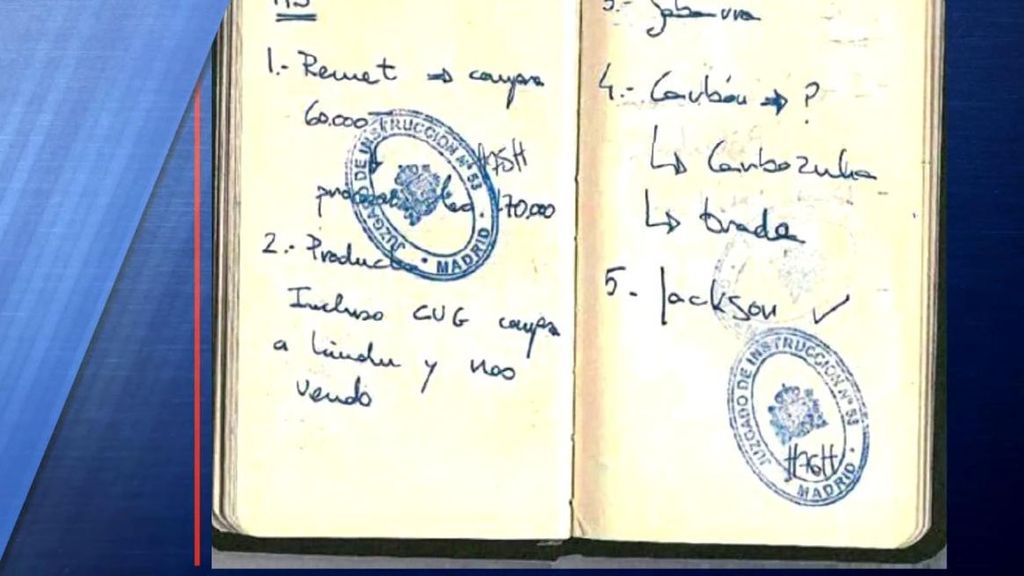 1.- Remet → compra
60.000
#75#
70.000
2.- Producto
Incluso CUG compra
a Lindu y nos
vendo
JUZGADO DE INSTRUCCIÓN Nº 53
MADRID
3.-
4.- Carbón → ?
↳ Carbozulia
↳ trader
5.- Jackson ✓
JUZGADO DE INSTRUCCIÓN Nº 53
#76#
MADRID